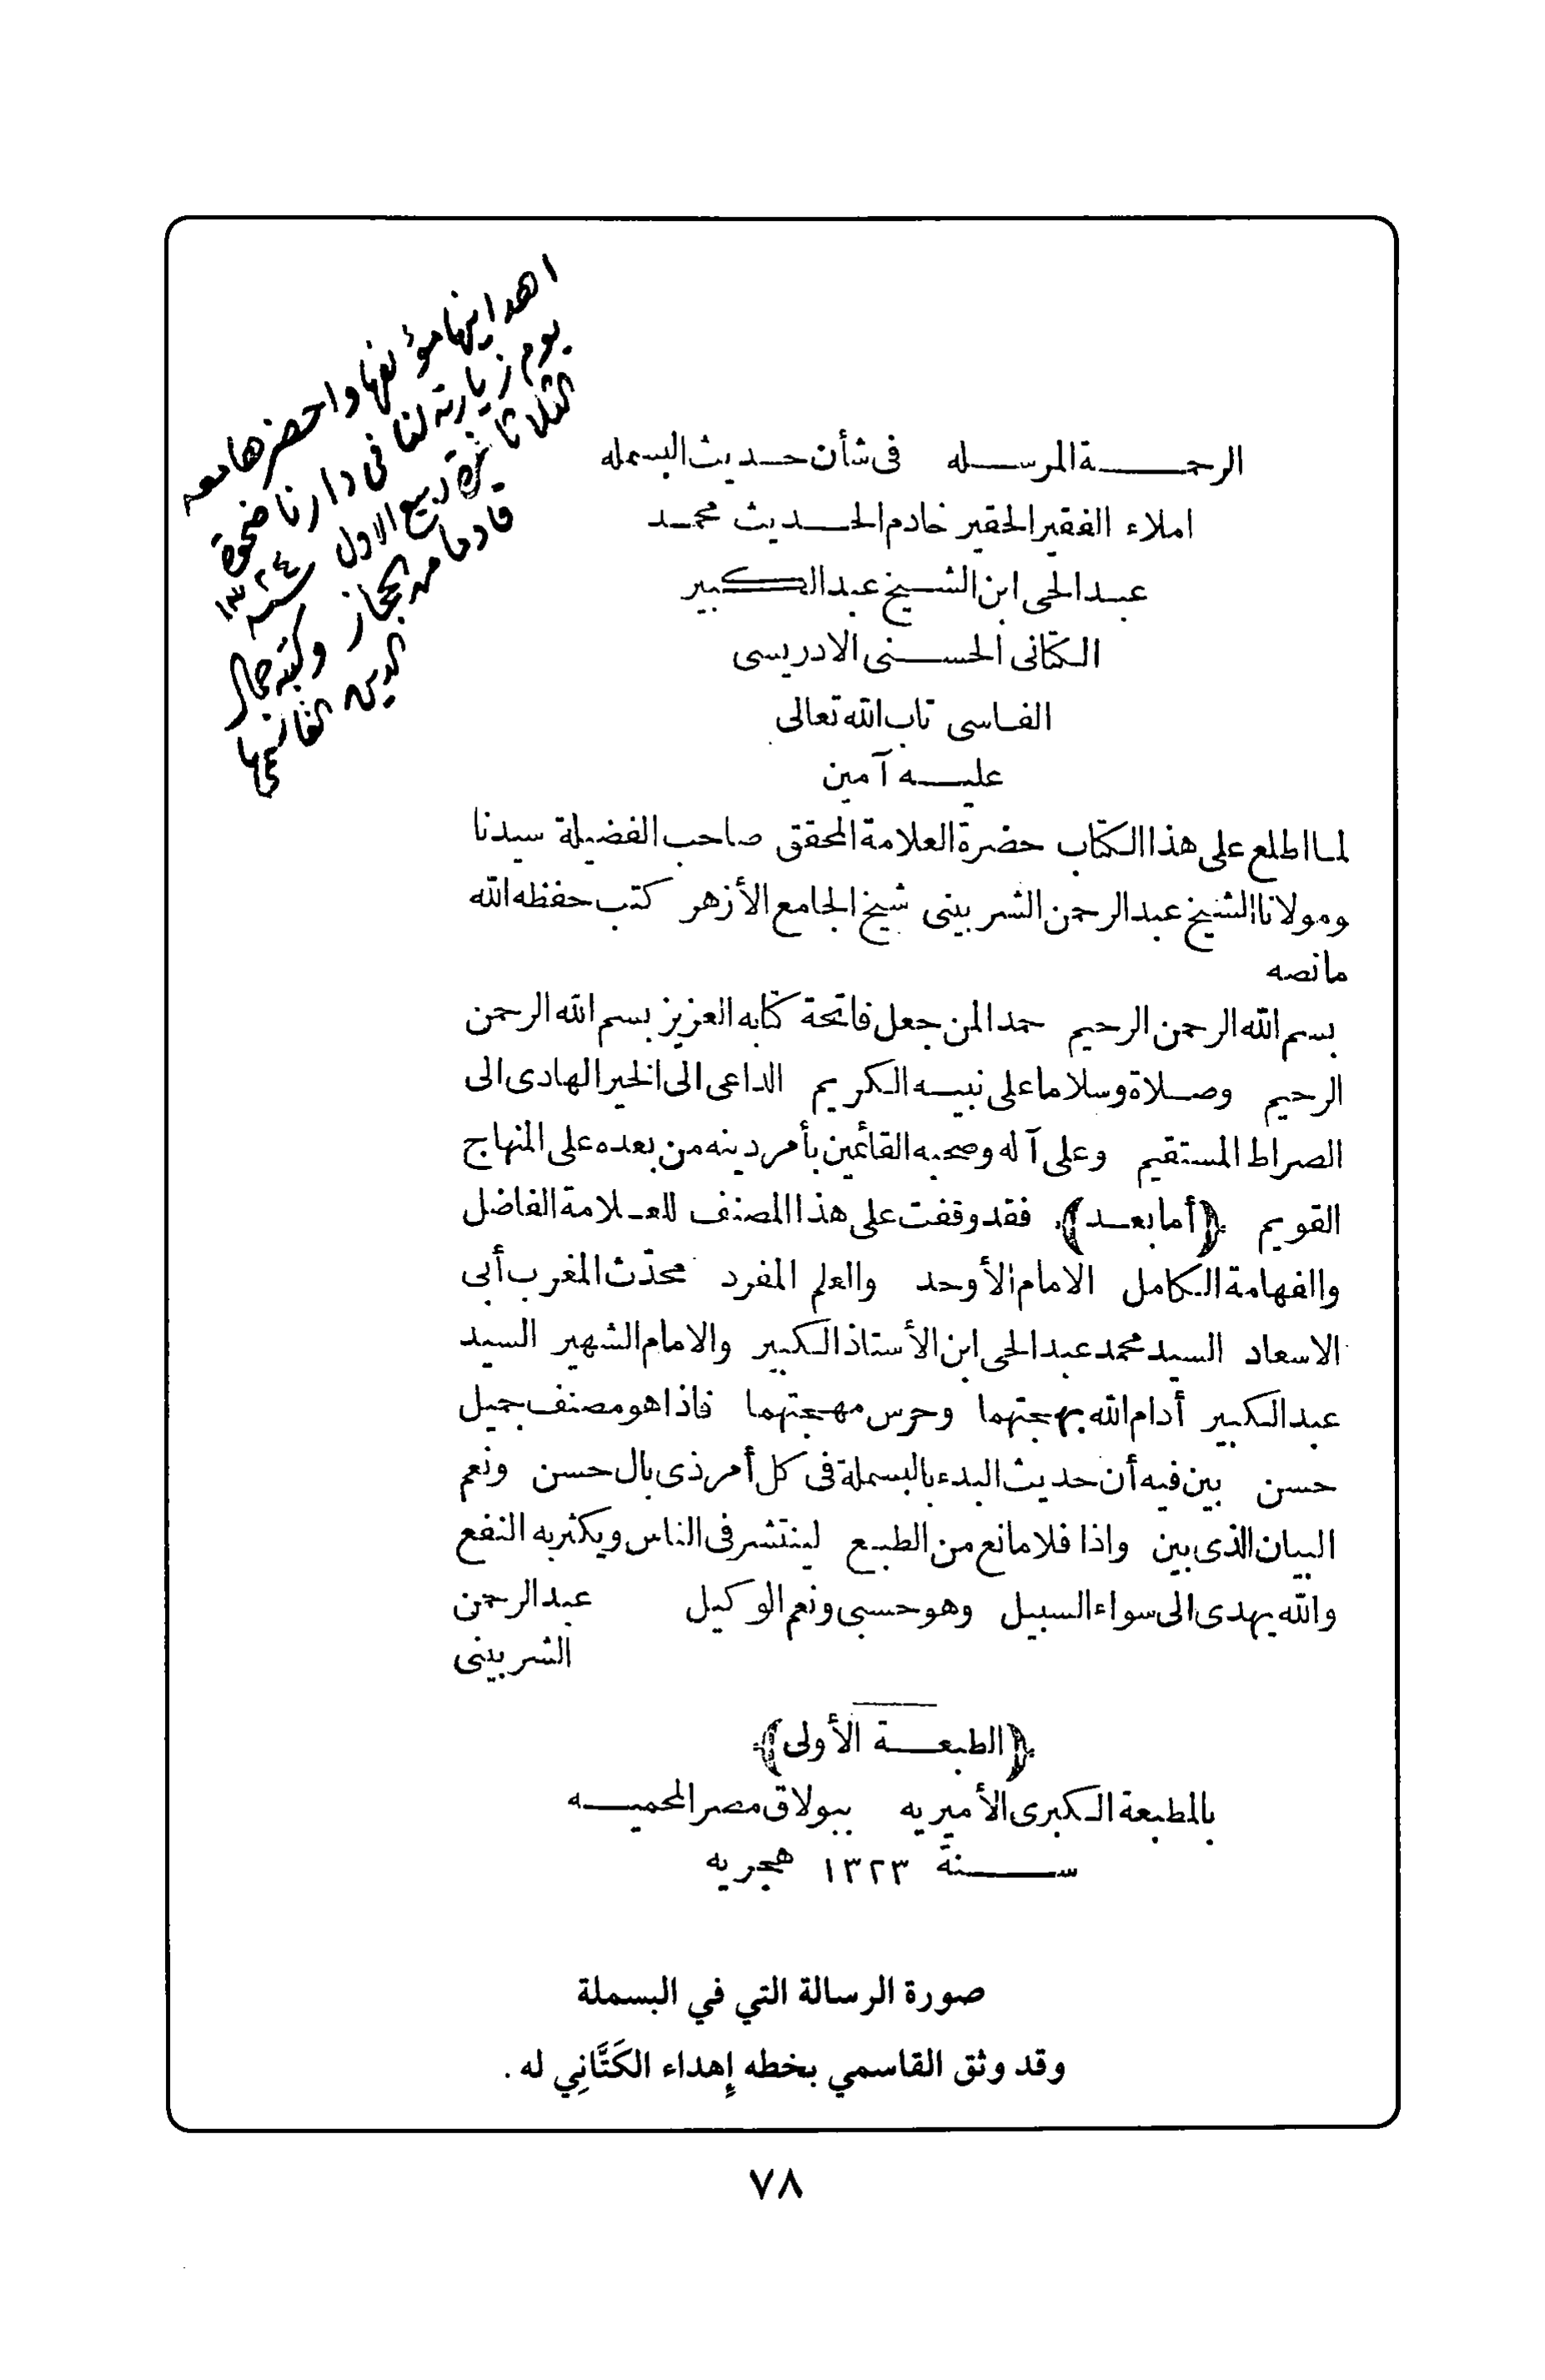 اهدانيها مؤلفها واحضرها معه
يوم زيارته لنا في دارنا ضحوة
الثلاثا غرة ربيع الاول سنة ١٣٢٤
قادما من الحجاز وكتبه جمال
الدين القاسمي
الرحمـــة المرســله في شأن حـديث البسمله
املاء الفقير الحقير خادم الحـديث محمـد
عبـد الحى ابن الشـيخ عبد الكبير
الكتانى الحسـنى الادريسى
الفـاسى تاب الله تعالى
عليــه آمين
لما اطلع على هذا الكتاب حضرة العلامة المحقق صاحب الفضيلة سيدنا
ومولانا الشيخ عبد الرحمن الشربينى شيخ الجامع الأزهر كتب حفظه الله
مانصه
بسم الله الرحمن الرحيم حمدا لمن جعل فاتحة كتابه العزيز بسم الله الرحمن
الرحيم وصـلاة وسلاما على نبيـه الكريم الداعى الى الخير الهادى الى
الصراط المستقيم وعلى آله وصحبه القائمين بأمر دينه من بعده على المنهاج
القويم ﴿أما بعـد﴾ فقد وقفت على هذا المصنف للعـلامة الفاضل
والفهامة الكامل الامام الأوحد والعلم المفرد محدّث المغرب أبى
الاسعاد السيد محمد عبد الحى ابن الأستاذ الكبير والامام الشهير السيد
عبد الكبير أدام الله بهجتهما وحرس مهجتهما فاذا هو مصنف جميل
حسن بين فيه أن حديث البدء بالبسملة فى كل أمر ذى بال حسن ونعم
البيان الذى بين واذا فلا مانع من الطبع لينتشر فى الناس ويكثر به النفع
والله يهدى الى سواء السبيل وهو حسبى ونعم الوكيل عبد الرحمن
الشربينى
﴿الطبعـــة الأولى﴾
بالمطبعة الكبرى الأميريه ببولاق مصر المحميــه
ســـنة ١٣٢٣ هجريه
صورة الرسالة التي في البسملة
وقد وثق القاسمي بخطه إهداء الكَتَّانِي له .
٧٨